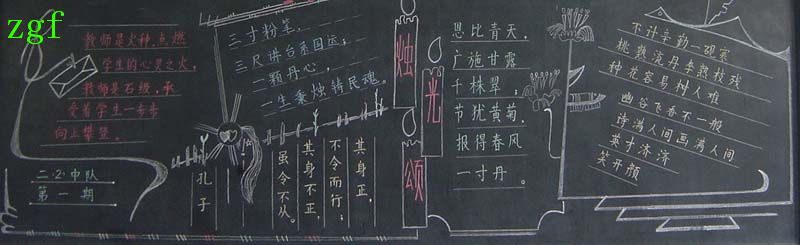 zgf
教师是火种,点燃
学生的心灵之火,
教师是石级,承
受着学生一步步
向上攀登。
二·2·中队
第一期
三寸粉笔,
三尺讲台系国运;
一颗丹心,
一生秉烛铸民魂。
其身正,
不令而行;
其身不正,
虽令不从。
——孔子
烛
光
颂
恩比青天,
广施甘露
千株翠;
节犹黄菊,
报得春风
一寸丹。
不计辛勤一砚寒
桃熟流丹李熟枝残
种花容易树人难
幽谷飞香不一般
诗满人间画满人间
英才济济
笑开颜